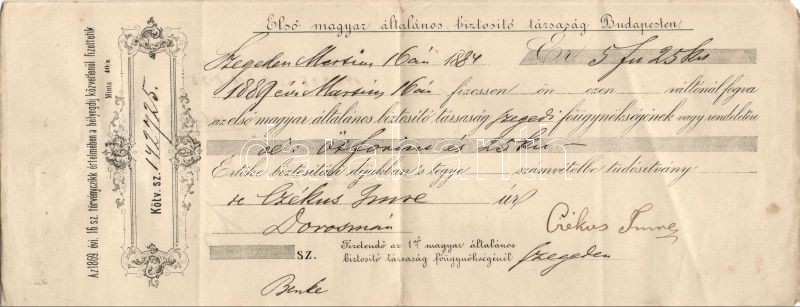 Első magyar általános biztositó társaság Budapesten
Szegeden Martius 16án 1884 Ér 5 frt 25 kr
1889 évi Martius 16án fizessen ön ezen váltónál fogva
az első magyar általános biztositó társaság szegedi főügynökségének vagy rendeletére
öt forint és 25 kr
Értéke biztositási dijakban s tegye számvetésbe tudósitvány
Czékus Imre úr
Dorosmán
Czékus Imre
SZ. Fizetendő az 1ső magyar általános
biztositó társaság főügynökségénél Szegeden
Benke
Az 1869 évi 16 sz. törvényczikk értelmében a bélyegdij közvetlenül fizettetik
Minta 40/a
Kötv. sz. 142725.